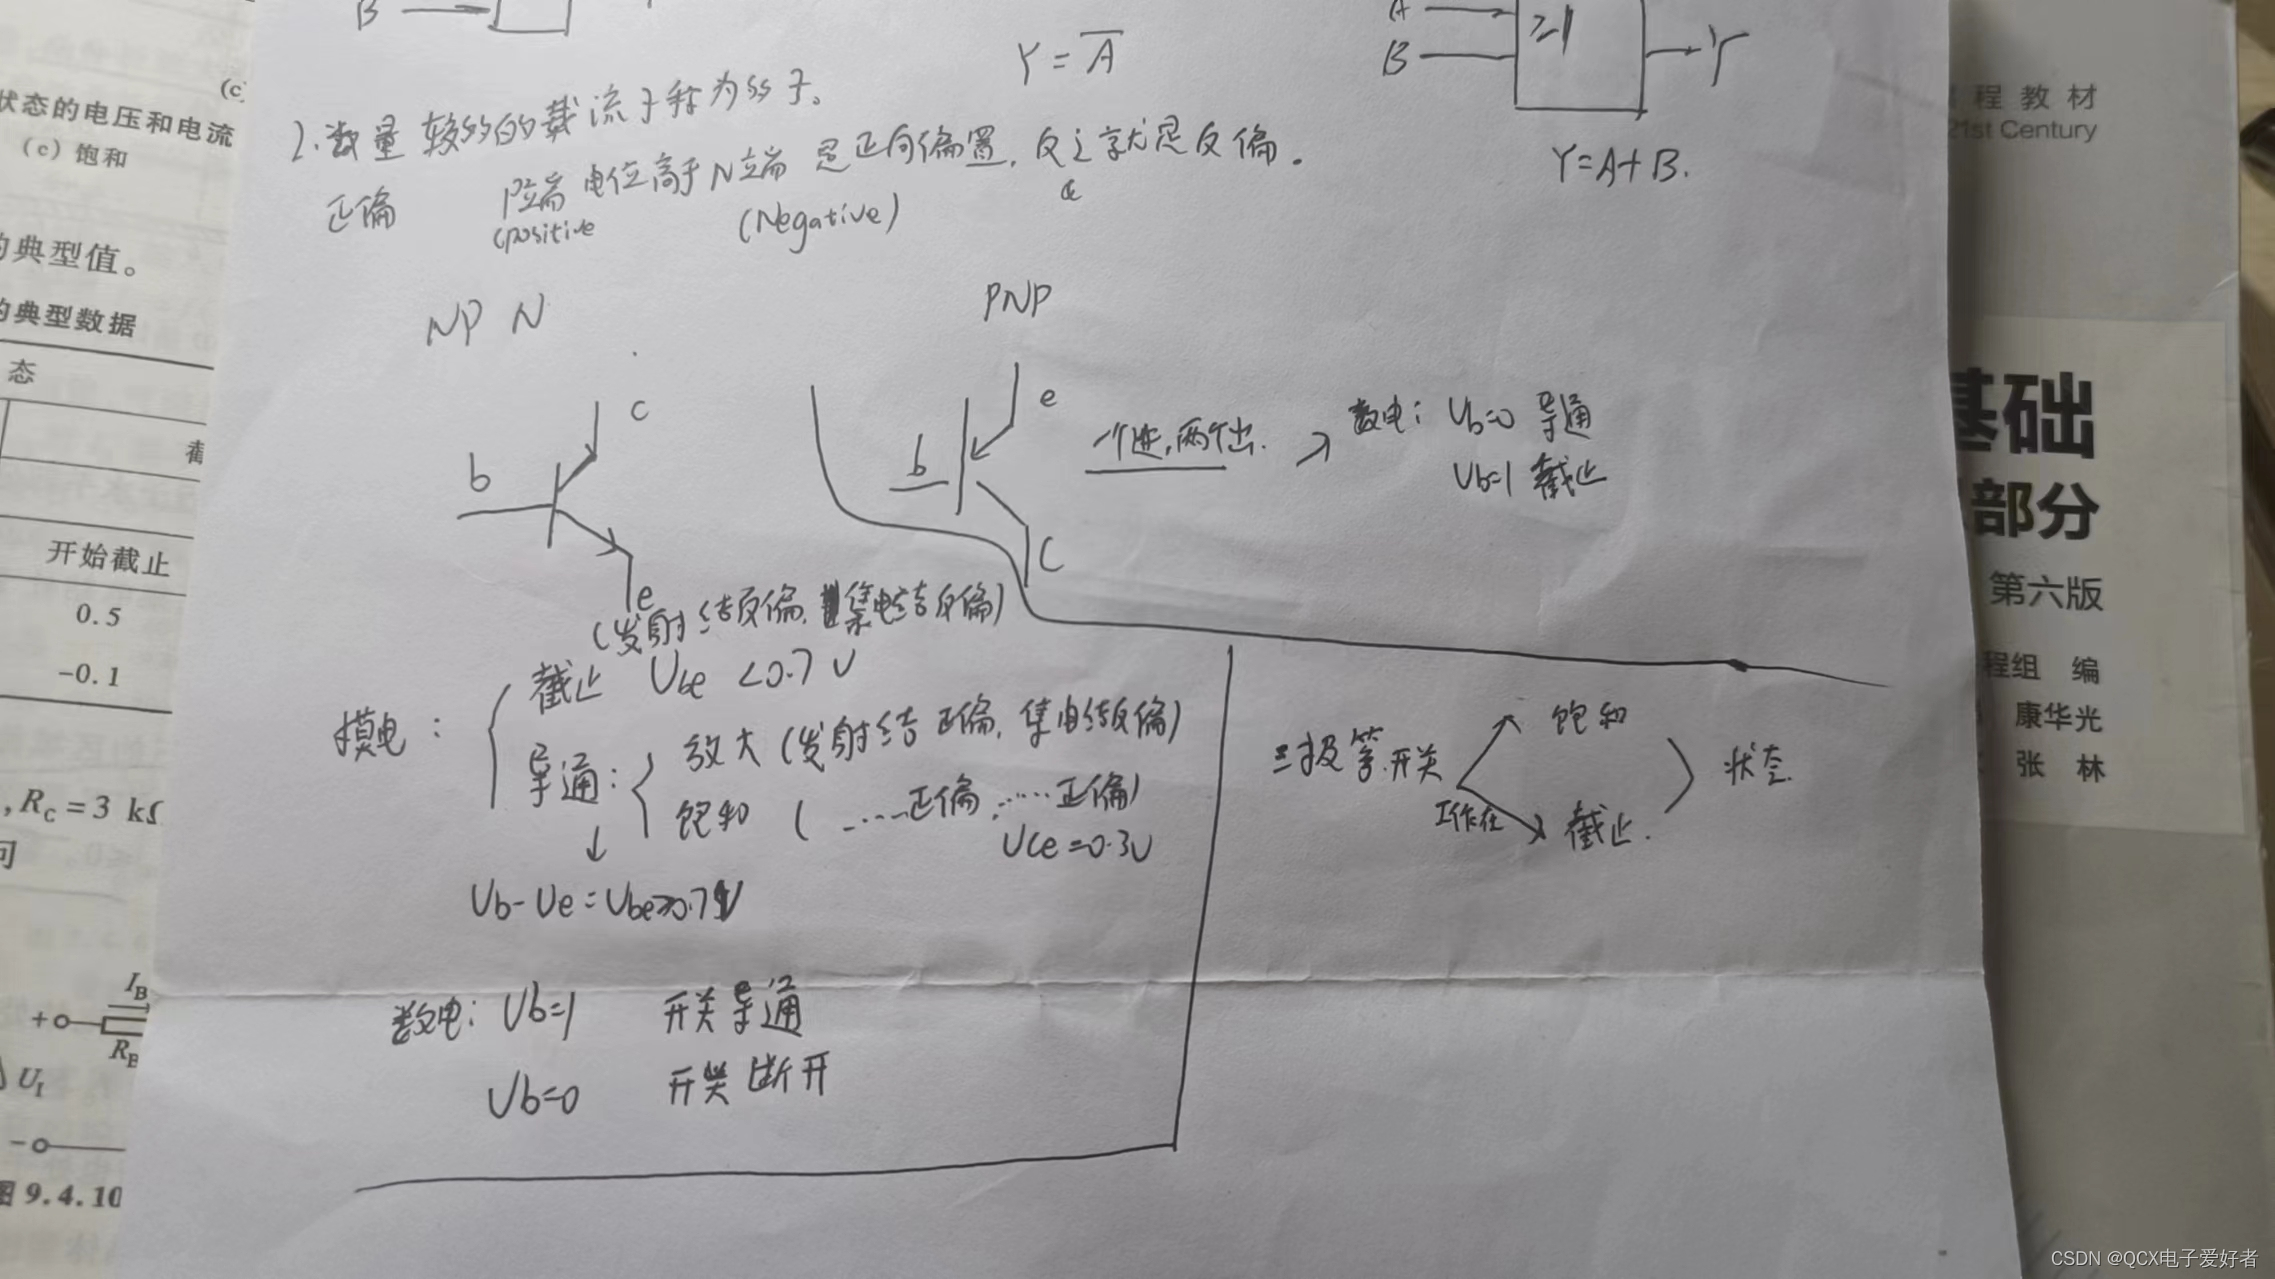 B
A
B
≥1
Y
Y=A̅
Y=A+B.
2.数量较多的载流子称为ss子。
正偏 P端电位高于N端 是正向偏置,反之就是反偏.
(positive (Negative)
NPN
PNP
b
c
e
b
e
C
一个进,两个出.
数电: Ub=0 导通
Ub=1 截止
(发射结反偏,集电结反偏)
模电:
截止 Ube <0.7V
导通:
放大(发射结正偏,集电结反偏)
饱和 ( ……正偏, ……正偏)
Uce=0.3V
Ub-Ue=Ube≥0.7V
数电: Ub=1 开关导通
Ub=0 开关断开
三极管开关
工作在
饱和
截止.
状态
(c
状态的电压和电流
(c)饱和
的典型值。
的典型数据
态
截
开始截止
0.5
-0.1
,RC=3 kΩ
问
IB
+
RB
UI
-
图9.4.10
程教材
21st Century
基础
部分
第六版
程组 编
康华光
张 林
CSDN @QCX电子爱好者